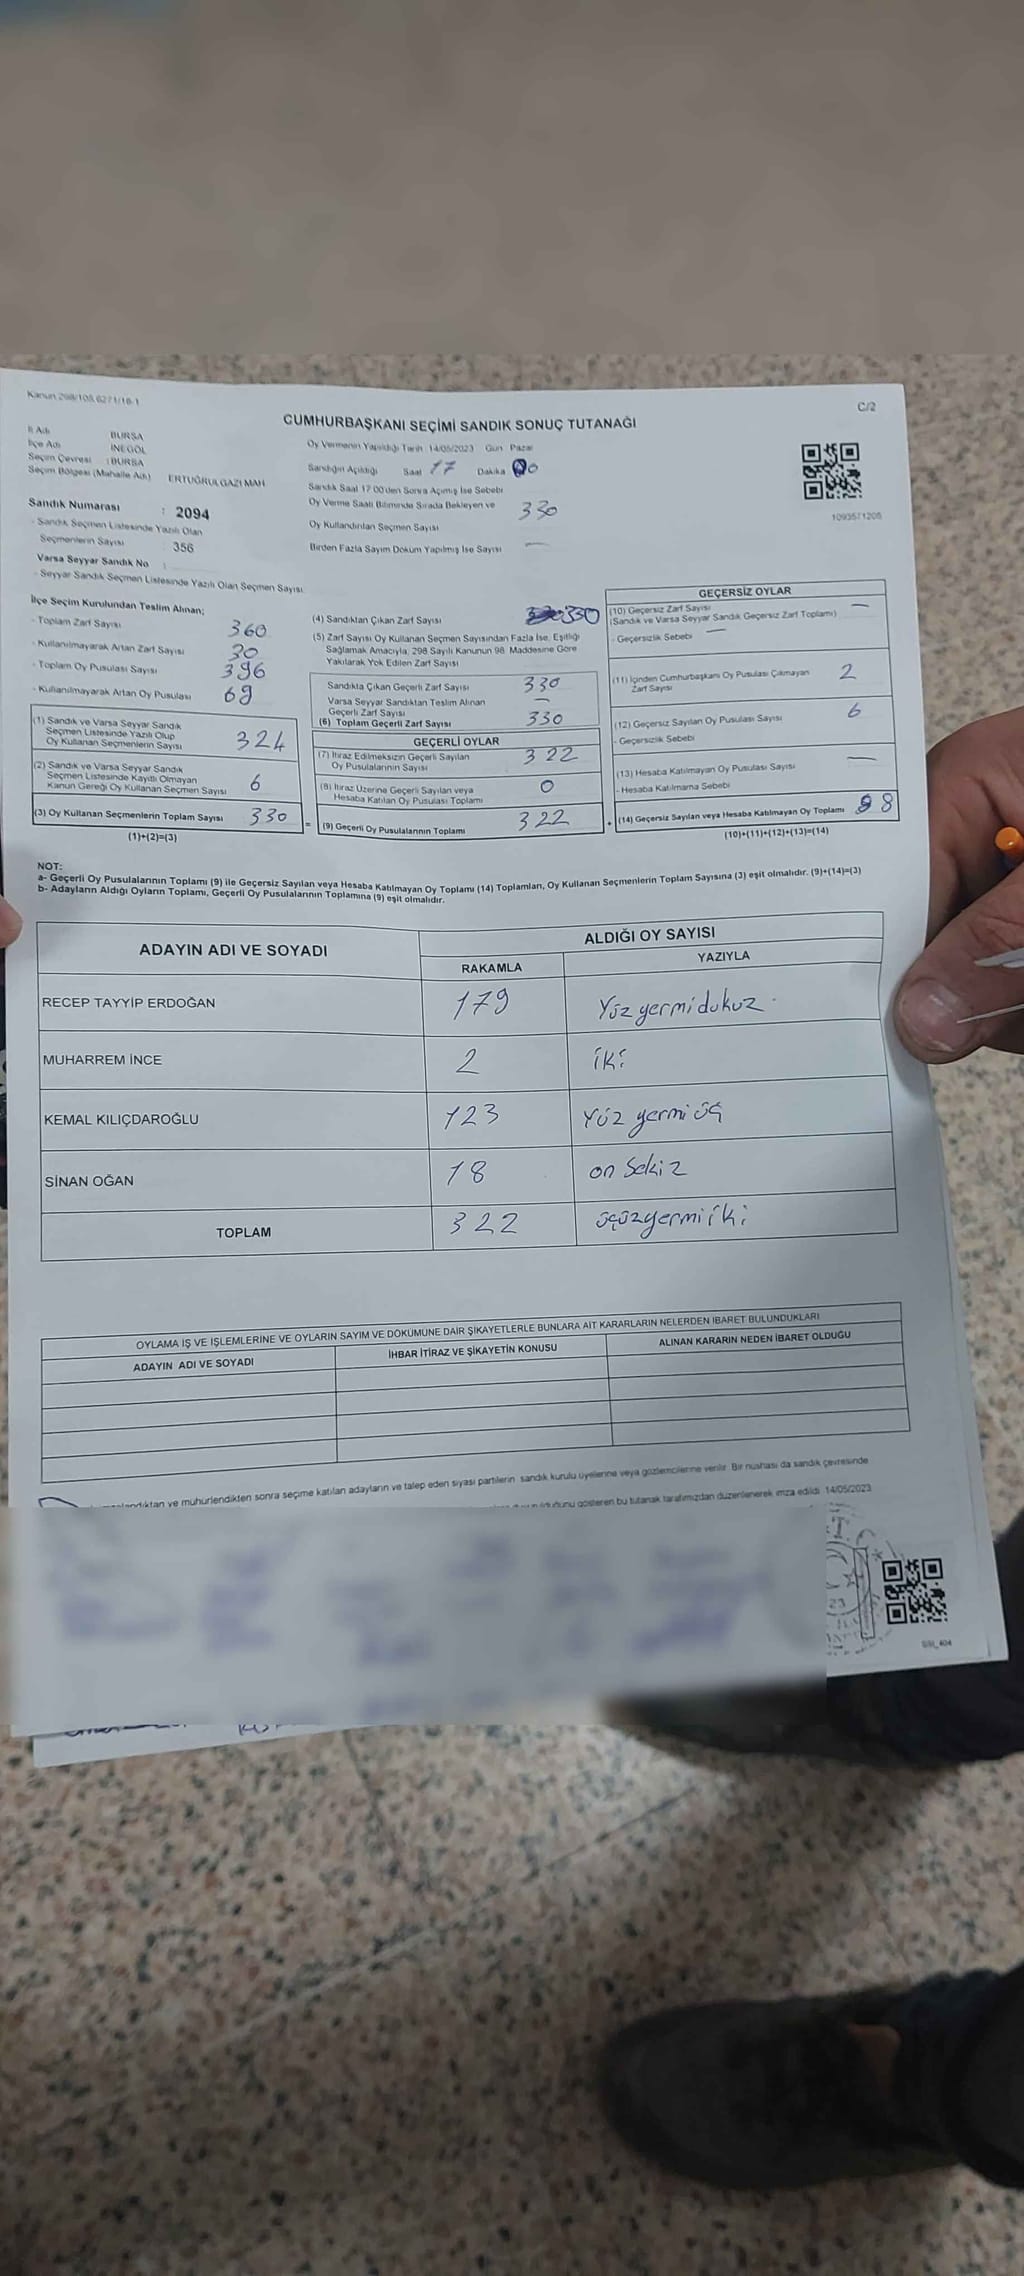 Kanun 298/105,6271/16-1
C/2
CUMHURBAŞKANI SEÇİMİ SANDIK SONUÇ TUTANAĞI
İl Adı BURSA
İlçe Adı İNEGÖL
Seçim Çevresi : BURSA
Seçim Bölgesi (Mahalle Adı) ERTUĞRULGAZİ MAH
Oy Vermenin Yapıldığı Tarih 14/05/2023 Gün Pazar
Sandığın Açıldığı Saat 17 Dakika 00
Sandık Saat 17:00'den Sonra Açımış İse Sebebi
Oy Verme Saati Bitiminde Sırada Bekleyen ve 330
Oy Kullandırılan Seçmen Sayısı
Birden Fazla Sayım Döküm Yapılmış İse Sayısı —
Sandık Numarası : 2094
- Sandık Seçmen Listesinde Yazılı Olan
Seçmenlerin Sayısı : 356
Varsa Seyyar Sandık No :
- Seyyar Sandık Seçmen Listesinde Yazılı Olan Seçmen Sayısı
İlçe Seçim Kurulundan Teslim Alınan;
- Toplam Zarf Sayısı 360
- Kullanılmayarak Artan Zarf Sayısı 30
- Toplam Oy Pusulası Sayısı 396
- Kullanılmayarak Artan Oy Pusulası 69
(1) Sandık ve Varsa Seyyar Sandık
Seçmen Listesinde Yazılı Olup
Oy Kullanan Seçmenlerin Sayısı 324
(2) Sandık ve Varsa Seyyar Sandık
Seçmen Listesinde Kayıtlı Olmayan
Kanun Gereği Oy Kullanan Seçmen Sayısı 6
(3) Oy Kullanan Seçmenlerin Toplam Sayısı 330
(1)+(2)=(3)
(4) Sandıktan Çıkan Zarf Sayısı 330
(5) Zarf Sayısı Oy Kullanan Seçmen Sayısından Fazla İse, Eşitliği
Sağlamak Amacıyla, 298 Sayılı Kanunun 98. Maddesine Göre
Yakılarak Yok Edilen Zarf Sayısı
Sandıkta Çıkan Geçerli Zarf Sayısı 330
Varsa Seyyar Sandıktan Teslim Alınan
Geçerli Zarf Sayısı —
(6) Toplam Geçerli Zarf Sayısı 330
GEÇERLİ OYLAR
(7) İtiraz Edilmeksizin Geçerli Sayılan
Oy Pusulalarının Sayısı 322
(8) İtiraz Üzerine Geçerli Sayılan veya
Hesaba Katılan Oy Pusulası Toplamı 0
= (9) Geçerli Oy Pusulalarının Toplamı 322
GEÇERSİZ OYLAR
(10) Geçersiz Zarf Sayısı —
(Sandık ve Varsa Seyyar Sandık Geçersiz Zarf Toplamı)
- Geçersizlik Sebebi —
(11) İçinden Cumhurbaşkanı Oy Pusulası Çıkmayan
Zarf Sayısı 2
(12) Geçersiz Sayılan Oy Pusulası Sayısı 6
- Geçersizlik Sebebi
(13) Hesaba Katılmayan Oy Pusulası Sayısı —
- Hesaba Katılmama Sebebi
+ (14) Geçersiz Sayılan veya Hesaba Katılmayan Oy Toplamı 8
(10)+(11)+(12)+(13)=(14)
NOT:
a- Geçerli Oy Pusulalarının Toplamı (9) ile Geçersiz Sayılan veya Hesaba Katılmayan Oy Toplamı (14) Toplamları, Oy Kullanan Seçmenlerin Toplam Sayısına (3) eşit olmalıdır. (9)+(14)=(3)
b- Adayların Aldığı Oyların Toplamı, Geçerli Oy Pusulalarının Toplamına (9) eşit olmalıdır.
ADAYIN ADI VE SOYADI ALDIĞI OY SAYISI
RAKAMLA YAZIYLA
RECEP TAYYİP ERDOĞAN 179 Yüz yermidokuz
MUHARREM İNCE 2 iki
KEMAL KILIÇDAROĞLU 123 Yüz yermi üç
SİNAN OĞAN 18 on sekiz
TOPLAM 322 üçüzyermiiki
OYLAMA İŞ VE İŞLEMLERİNE VE OYLARIN SAYIM VE DÖKÜMÜNE DAİR ŞİKAYETLERLE BUNLARA AİT KARARLARIN NELERDEN İBARET BULUNDUKLARI
ADAYIN ADI VE SOYADI İHBAR İTİRAZ VE ŞİKAYETİN KONUSU ALINAN KARARIN NEDEN İBARET OLDUĞU
ve mühürlendikten sonra seçime katılan adayların ve talep eden siyasi partilerin sandık kurulu üyelerine veya gözlemcilerine verilir. Bir nüshası da sandık çevresinde
gösteren bu tutanak tarafımızdan düzenlenerek imza edildi. 14/05/2023